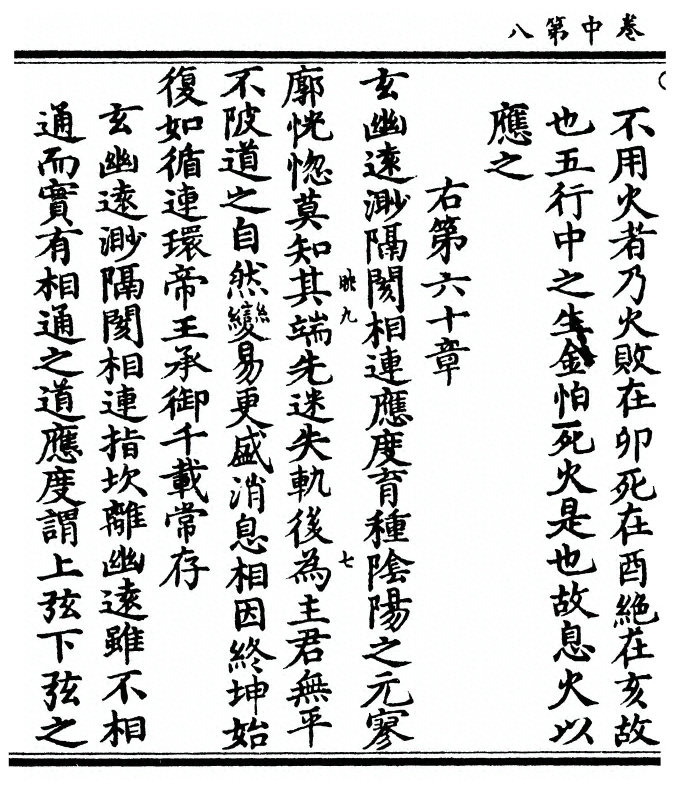 卷中第八
不用火者乃火敗在卯死在酉絕在亥故
也五行中之生金怕死火是也故息火以
應之
右第六十章
玄幽遠渺隔閡相連應度育種陰陽之元寥
眺九
七
廓恍惚莫知其端先迷失軌後為主君無平
不陂道之自然變易更盛消息相因終坤始
復如循連環帝王承御千載常存
玄幽遠渺隔閡相連指坎離幽遠雖不相
通而實有相通之道應度謂上弦下弦之